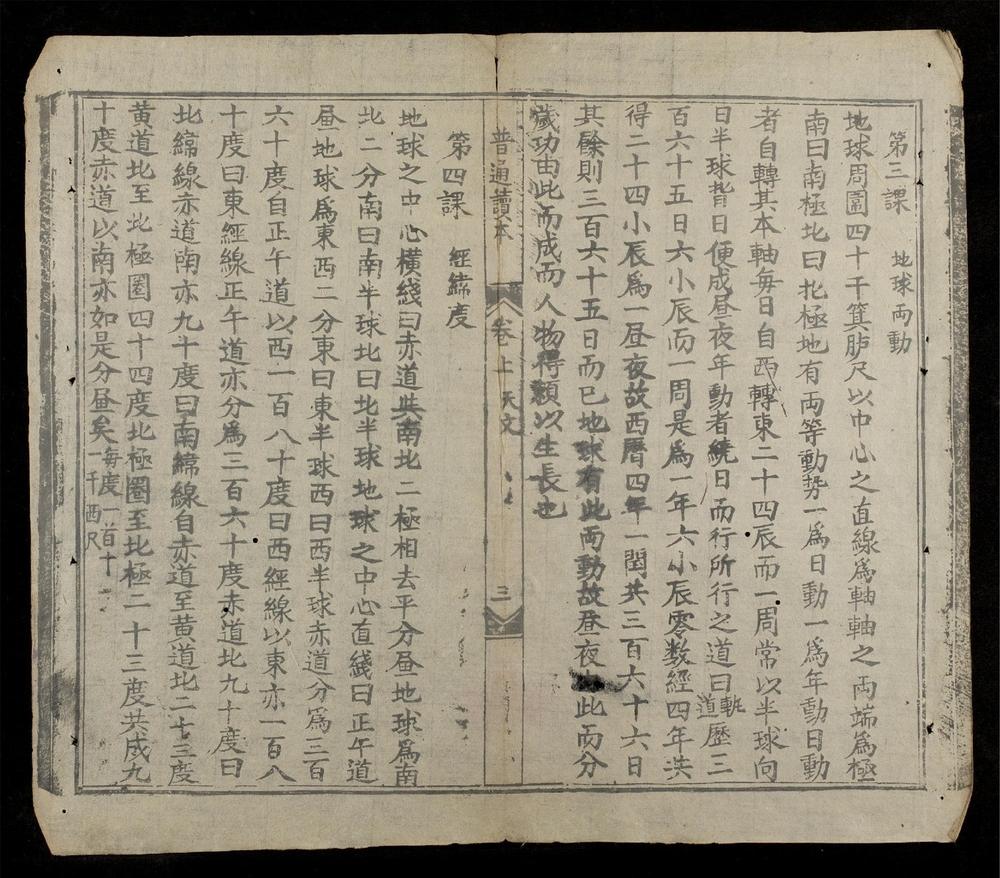 第三課 地球両動
地球周圍四十千箕胪尺以中心之直線爲軸軸之両端爲極
南曰南極北曰北極地有両等動势一爲日動一爲年動日動
者自轉其本軸毎日自西轉東二十四辰而一周常以半球向
日半球揹日便成昼夜年動者繞日而行所行之道曰軌道歷三
百六十五日六小辰而一周是爲一年六小辰零数經四年洪
得二十四小辰爲一昼夜故西曆四年一閏共三百六十六日
其餘則三百六十五日而已地球有此両動故昼夜此而分
歲功由此而成而人物得類以生長也
普通讀本 卷上 天文 三
第四課 經緯度
地球之中心横綫曰赤道共南北二極相去平分昼地球爲南
北二分南曰南半球北曰北半球地球之中心直綫曰正午道
昼地球爲東西二分東曰東半球西曰西半球赤道分爲三百
六十度自正午道以西一百八十度曰西經線以東亦一百八
十度曰東經線正午道亦分爲三百六十度赤道北九十度曰
北緯線赤道南亦九十度曰南緯線自赤道至黄道北二十三度
黄道北至北極圈四十四度北極圈至北極二十三度共成九
十度赤道以南亦如是分昼矣每度一百十一千西尺